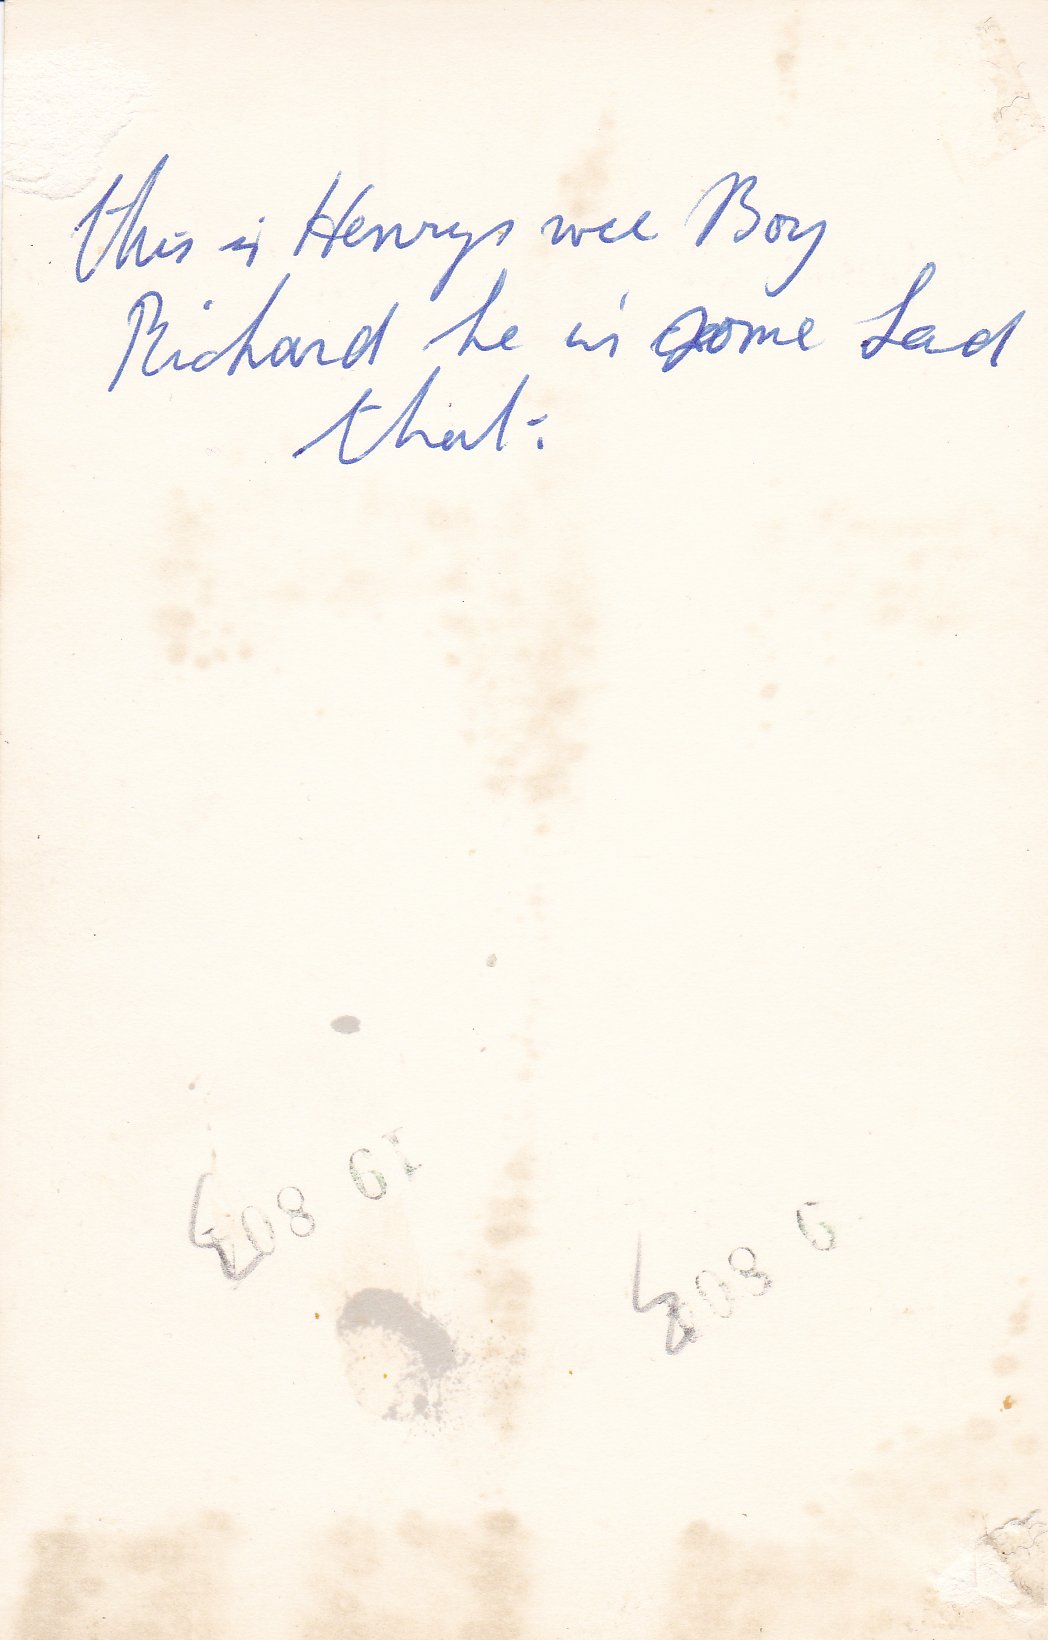 this is Henrys wee Boy
Richard he is some Lad
that.